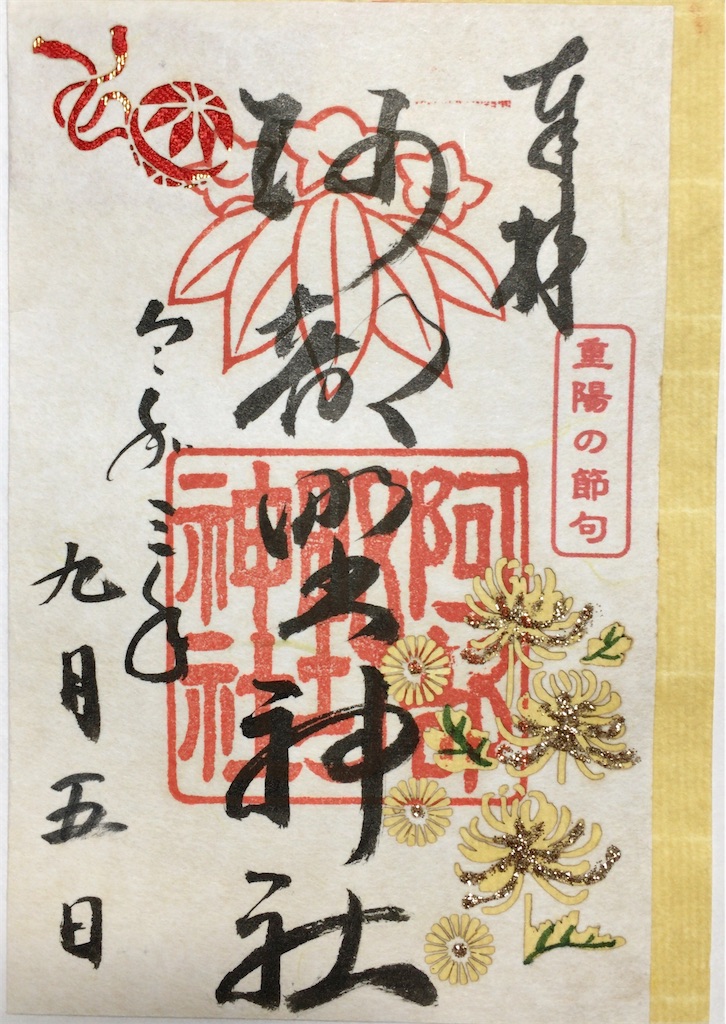 奉拝
重陽の節句
阿部野神社
阿部野神社
令和三年
九月五日